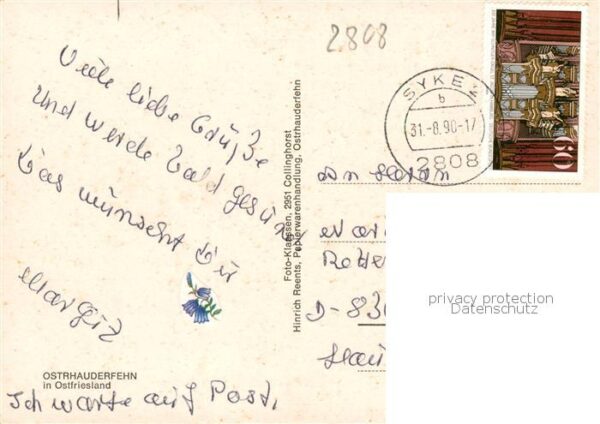 2808
Viele liebe Grüße
und werde bald gesund
Das wünscht Dir
Margit
OSTRHAUDERFEHN
in Ostfriesland
Ich warte auf Post.
Foto-Klaassen, 2951 Collinghorst
Hinrich Reents, Papierwarenhandlung, Ostrhauderfehn
SYKE 1
b
31.-8.90-17
2808
60
An
D-830
privacy protection
Datenschutz